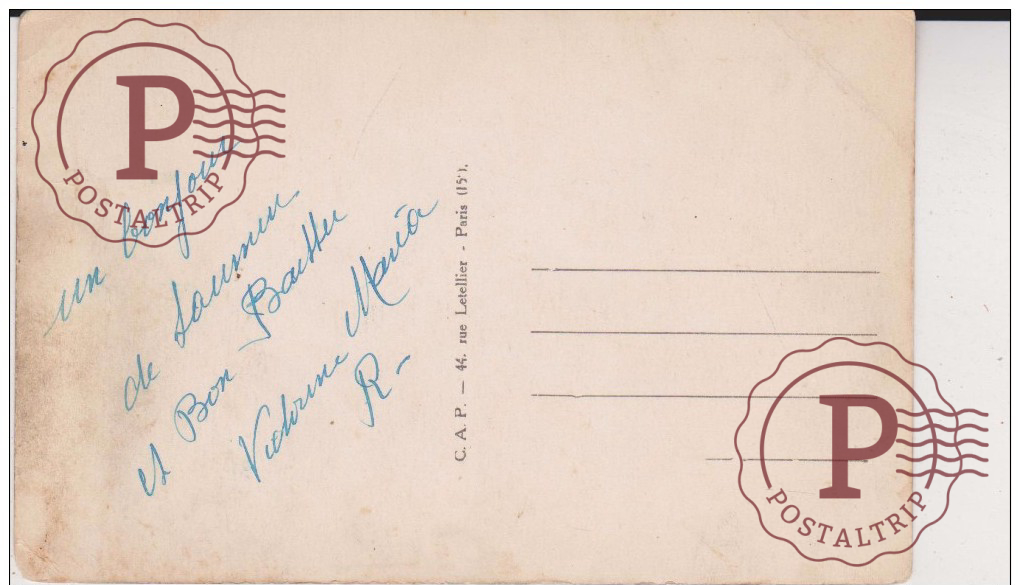 un bonjour
de Saumur
et Bon Baiser
Victorine Maria
R-
C. A. P. — 44, rue Letellier - Paris (15e).
P
POSTALTRIP
P
POSTALTRIP